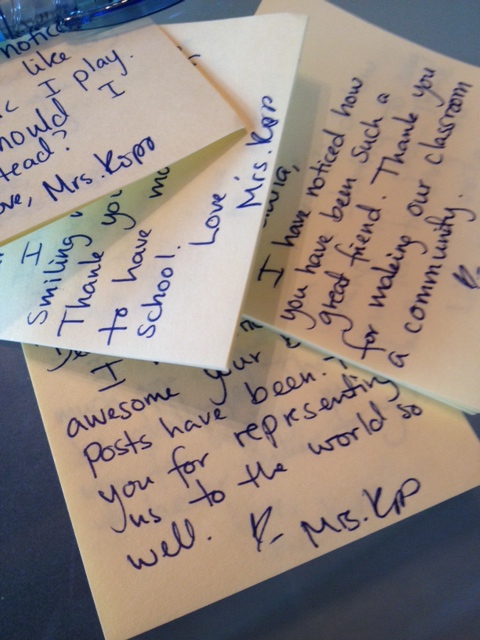 notice
like
c I play.
hould I
tead?
ove, Mrs. Ripp
I
Smiling
Thank you
to have mo
school.
Love,
Mrs. Ripp
I have noticed how
you have been such a
great friend. Thank you
for making our classroom
a community.
I
awesome your
posts have been.
you for representing
us to the world so
well.
Mrs. Ripp